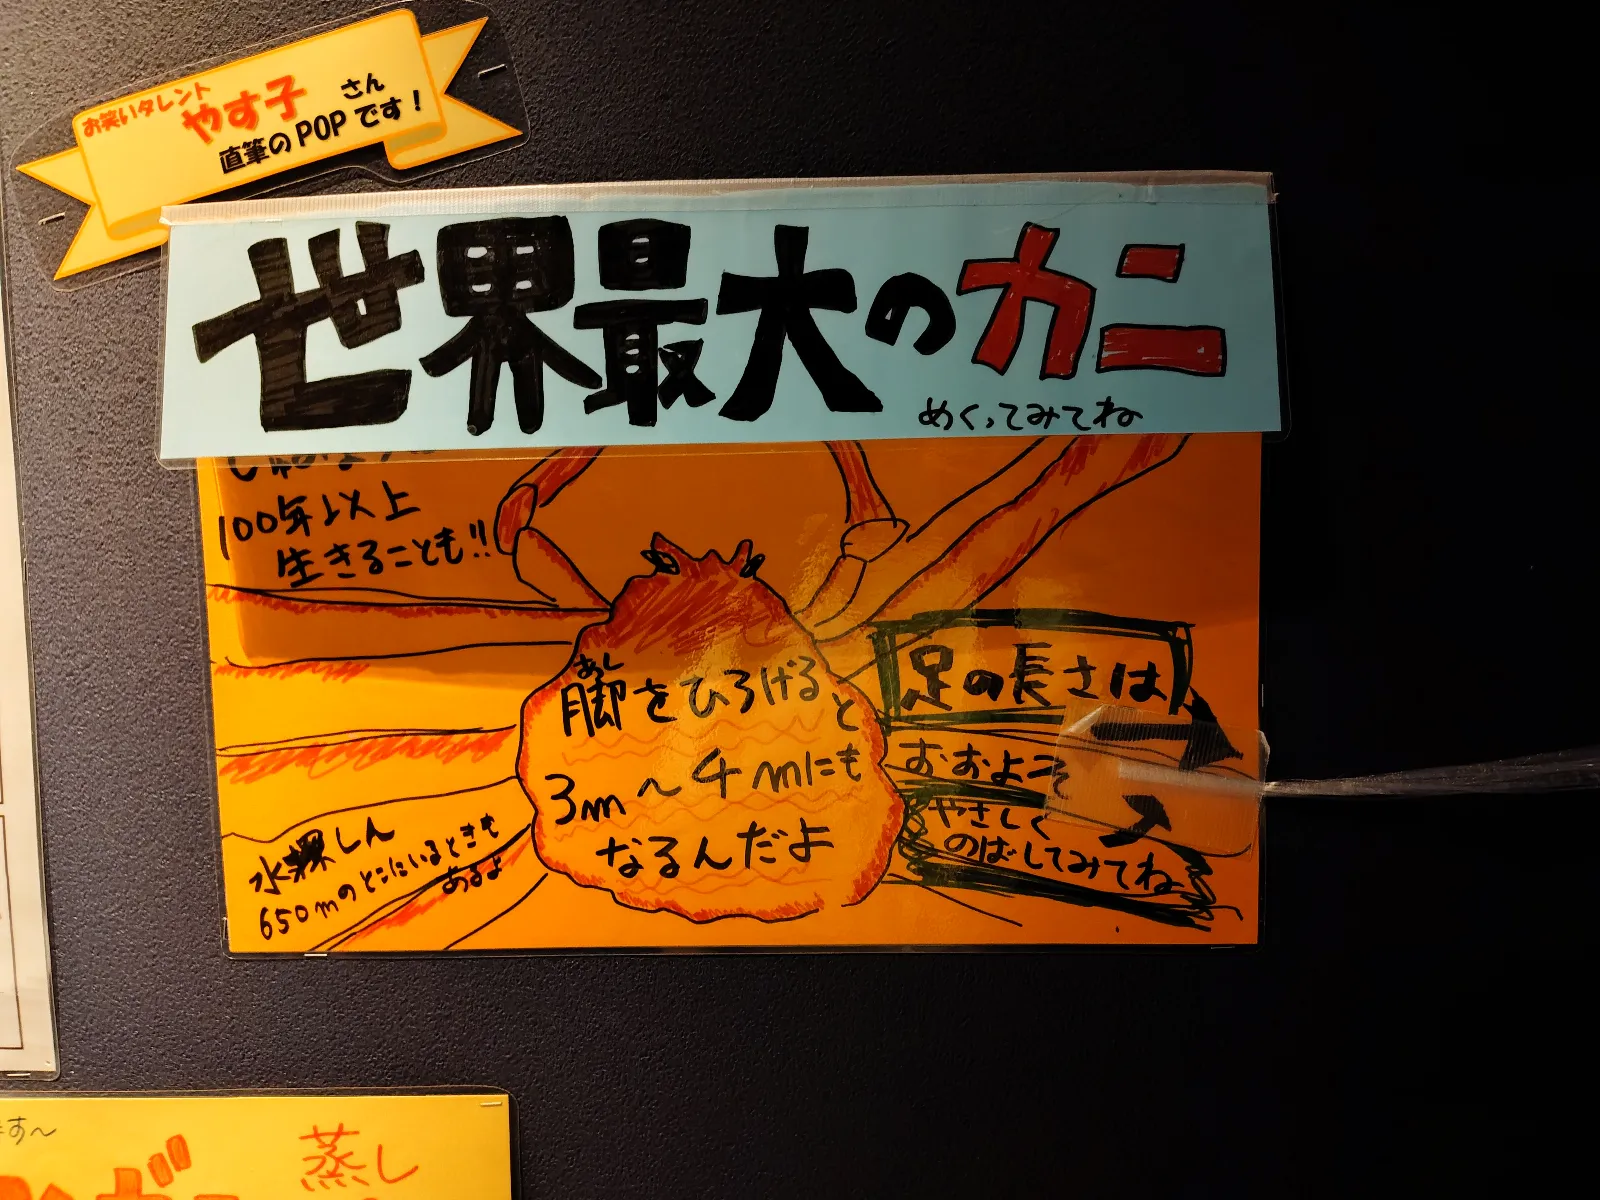 お笑いタレント
やす子さん
直筆のPOPです！
世界最大のカニ
めくってみてね
100年以上
生きることも!!
あし
脚をひろげると
3m〜4mにも
なるんだよ
足の長さは
おおよそ
やさしく
のばしてみてね
水深しん
650mのとこにいるときも
あるよ
ます〜
蒸し